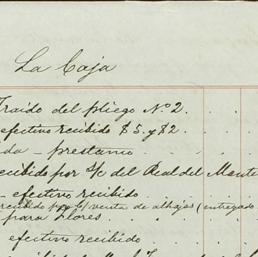 La Caja
Traido del pliego No 2.
efectivo recibido $5. y 82.
da - prestamo
recibido por o/c del Real del Monte
- efectivo recibido
recibido por c/ venta de alhajas (entregado
para Flores
efectivo recibido